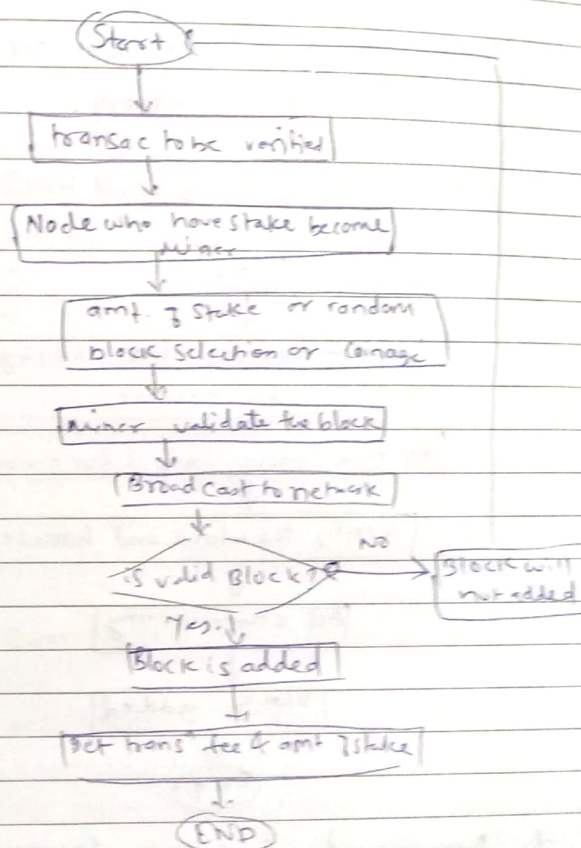 Start
transac to be verified
Node who have stake become
miner
amt. of stake or random
block selection or Coinage
miner validate the block
Broad Cast to network
is valid Block?
No
Block will
not added
Yes.
Block is added
Get transⁿ fee & amt of stake
END